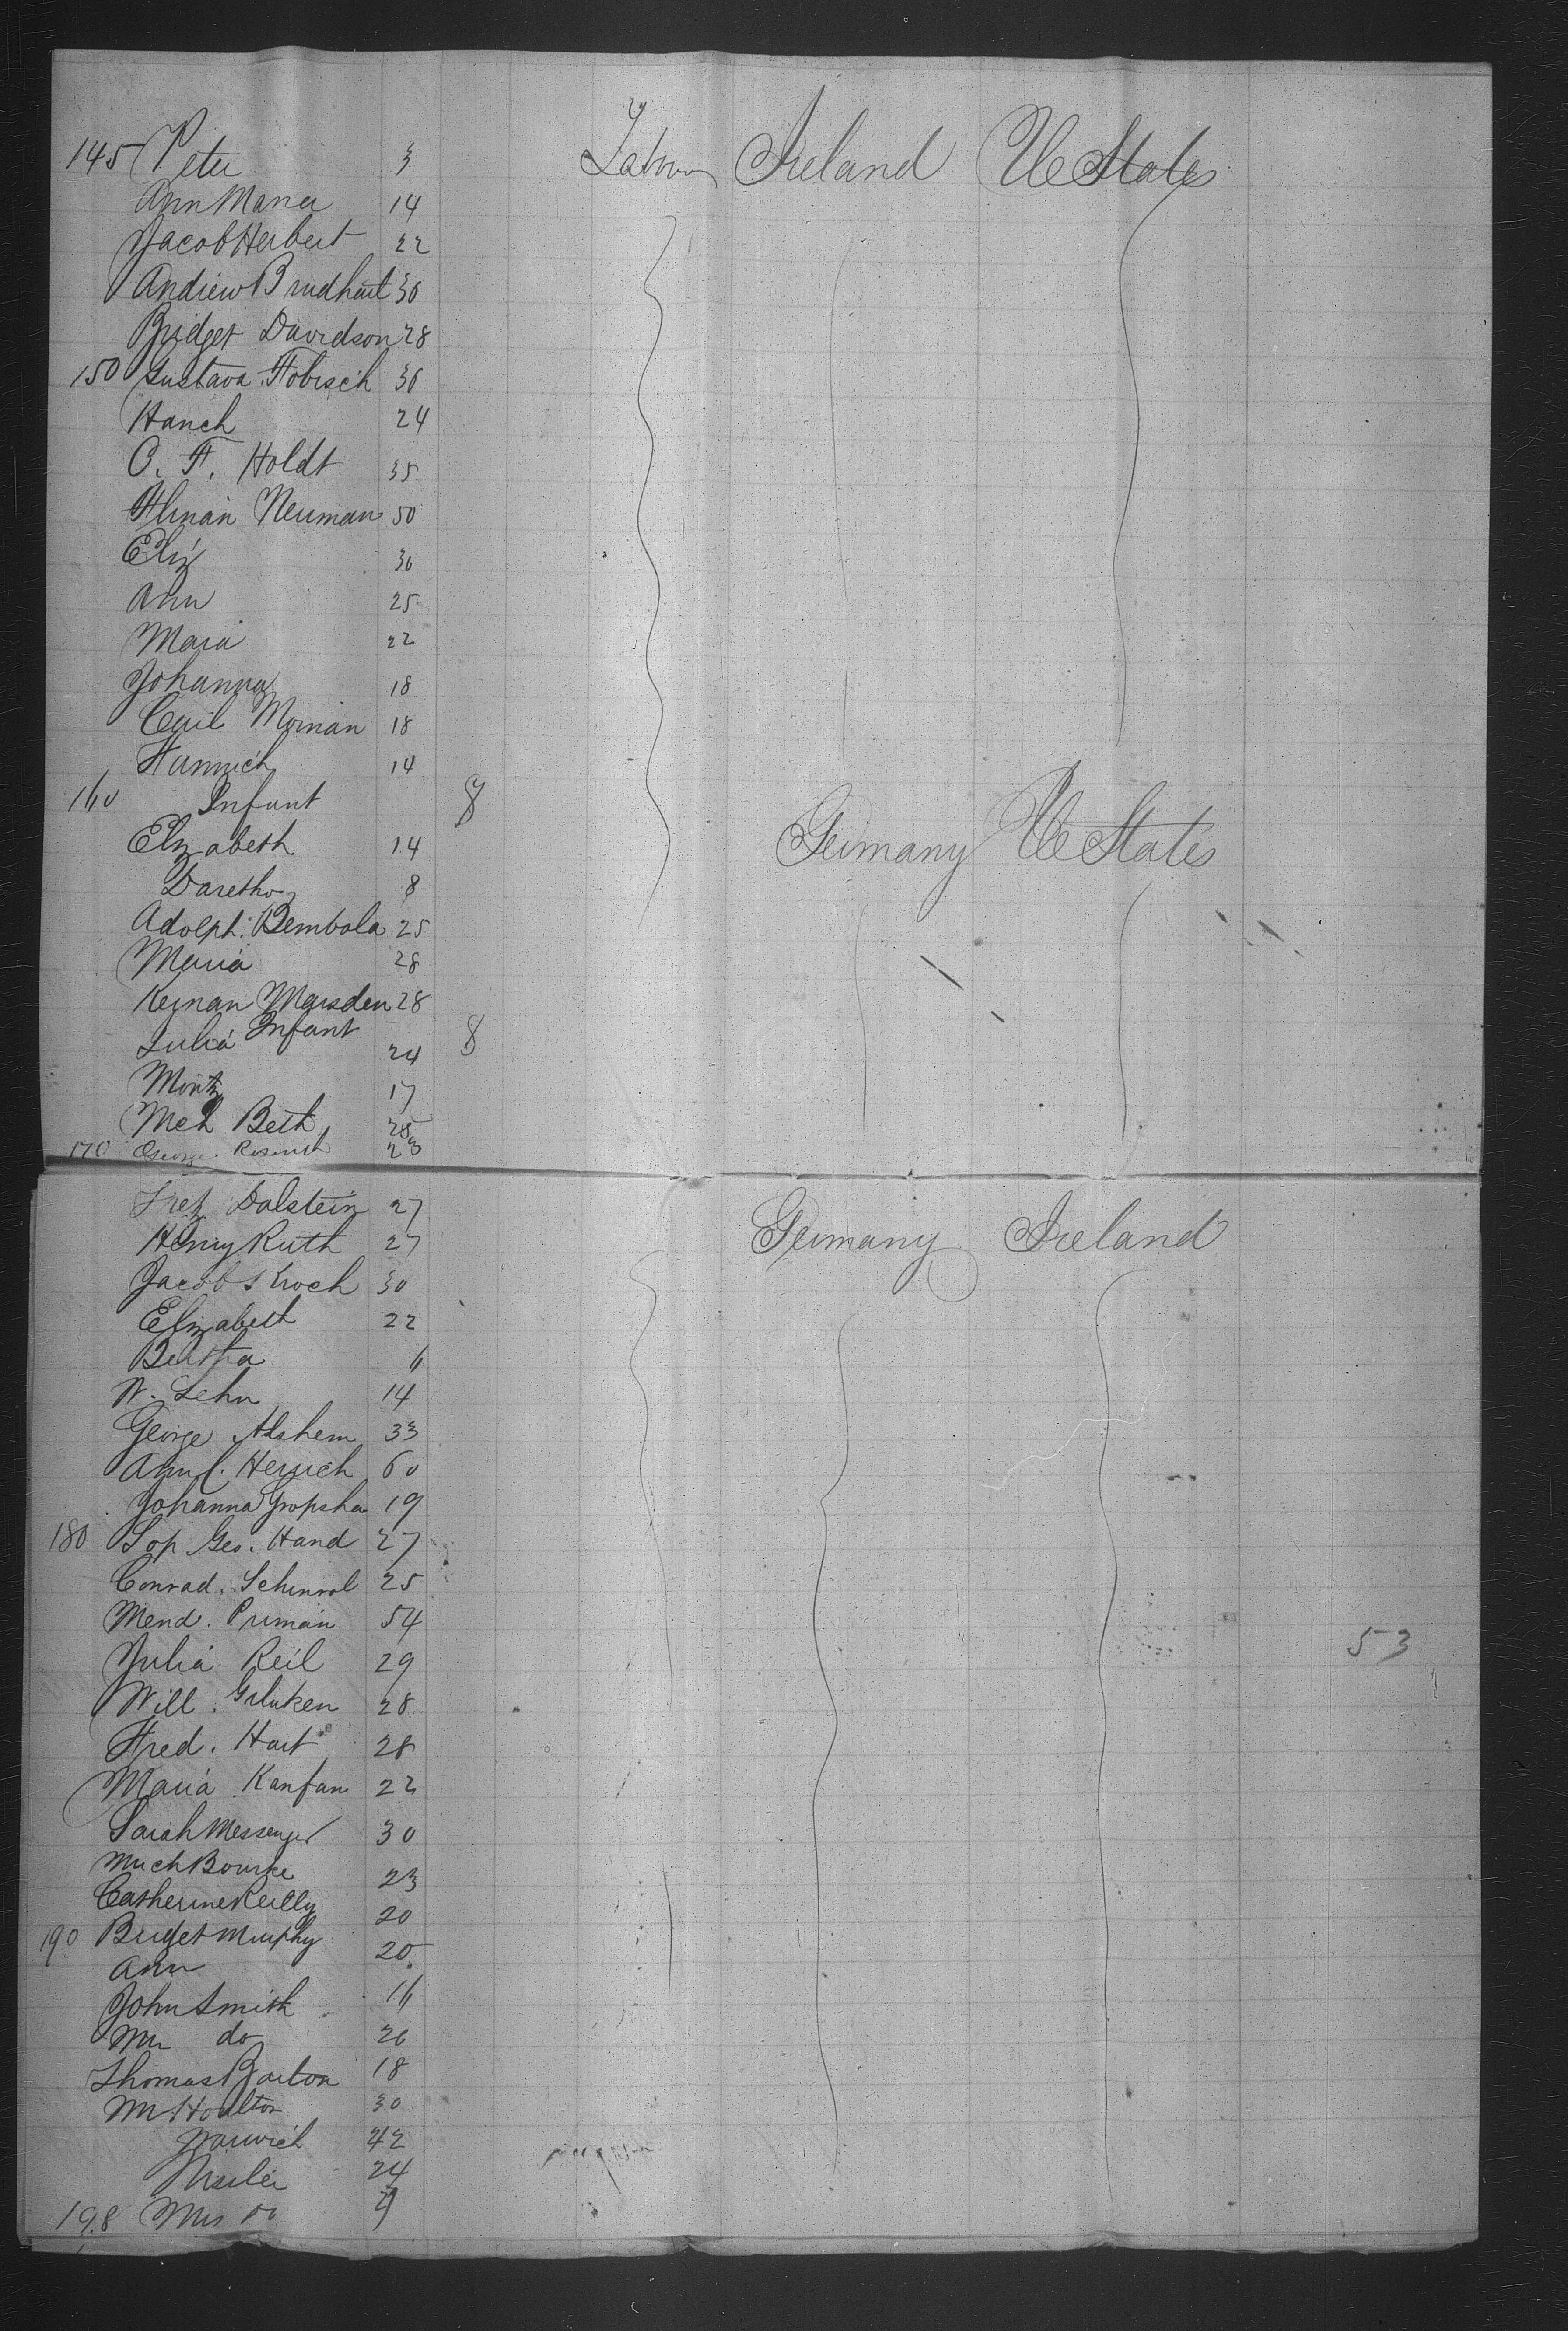 145 Peter 3 Labour Ireland U States
Ann Maria 14
Jacob Herbert 22
Andrew Brudhart 30
Bridget Davidson 28
150 Gustava Fobisch 30
Hanch 24
C. F. Holdt 35
Neuman 50
Eliz 30
Ann 25
Maria 22
Johanna 18
Morman 18
Hannich 14
160 Infant 8
Elizabeth 14 Germany U States
Daretha 8
Adolph. Bembola 25
Maria 28
Kernan Marsden 28
Infant 8
Julia 24
Moritz 17
Mch Beth 25
170 George. 23
Fretz Dalstein 27
Henry Ruth 27 Germany Ireland
Jacob Kroch 30
Elizabeth 22
Bertha 6
W. Lehn 14
George Alshem 33
Ann C. Herrich 60
Johanna Gropsha 19
180 Sop Geo. Hand 27
Conrad. 25
Mend. Puman 54
53
Julia Reil 29
Will. 28
Fred. Hart 28
Maria Kanfan 22
Sarah Messenger 30
Mich Bourke 23
Catherine Reilly 20
190 Bridget Murphy 20
Ann 16
John Smith 26
Mrs do 18
Thomas Barton 30
42
Warwick 24
198 Mrs do